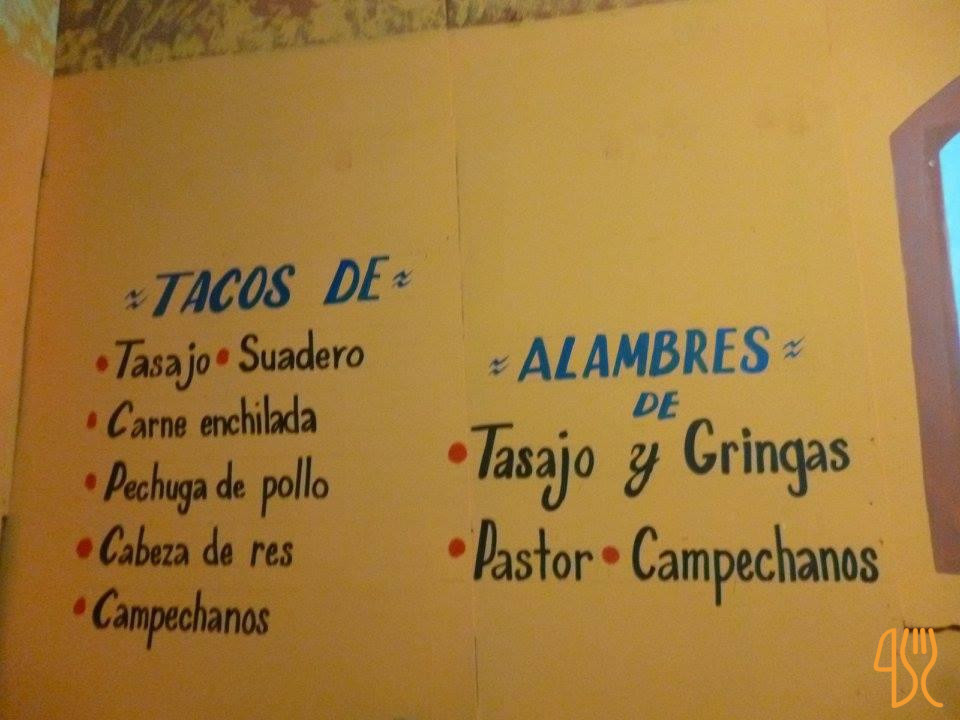 ≈ TACOS DE ≈
• Tasajo • Suadero
• Carne enchilada
• Pechuga de pollo
• Cabeza de res
• Campechanos
≈ ALAMBRES ≈
DE
• Tasajo y Gringas
• Pastor • Campechanos